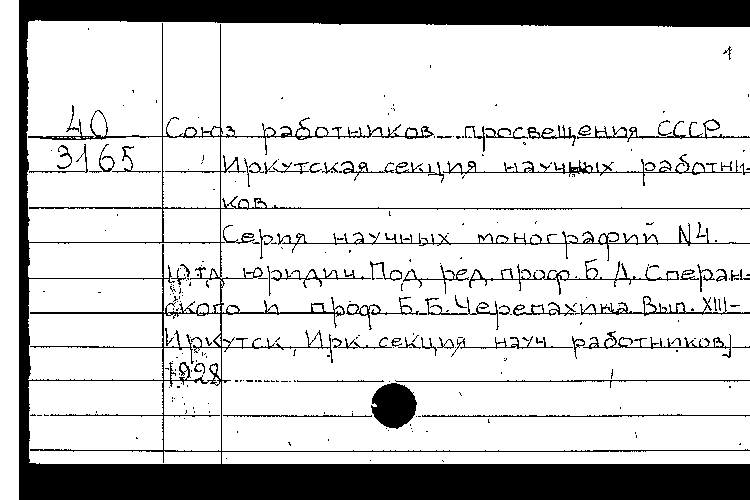 1
40
3165
Союз работников просвещения СССР.
Иркутская секция научных работни-
ков.
Серия научных монографий №4.
Отд. юридич. Под ред. проф. Б. Д. Сперан-
ского и проф. Б. Б. Черепахина. Вып. XIII-
Иркутск, Ирк. секция науч. работников,
1928.